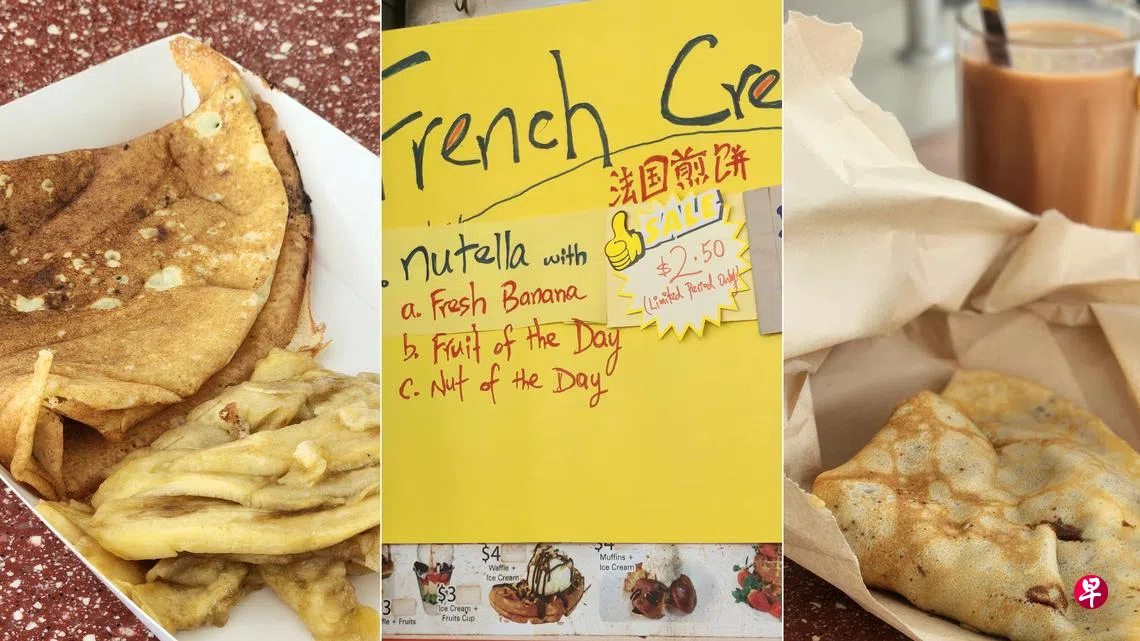 French Cre
法国煎饼
SALE
$2.50
(Limited Period Only)
nutella with
a. Fresh Banana
b. Fruit of the Day
c. Nut of the Day
$4
Waffle +
Ice Cream
$3
Ice Cream +
Fruits Cup
$4
Muffins +
Ice Cream
fle + Fruits
早